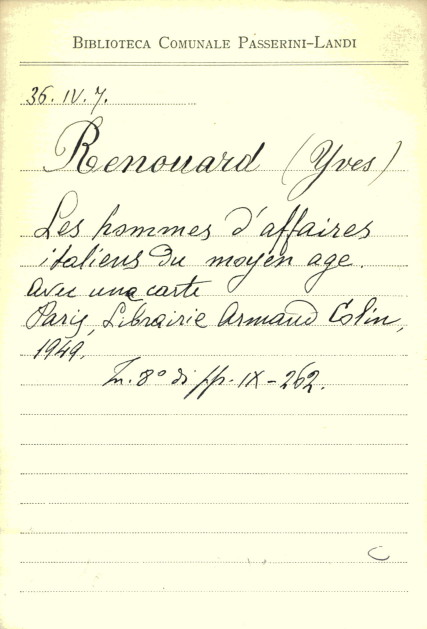 BIBLIOTECA COMUNALE PASSERINI-LANDI
36. IV. 7.
Renouard (Yves)
Les hommes d'affaires
italiens du moyen age.
avec una carte
Paris, Librairie Armand Colin,
1949.
In. 8° di pp. IX - 262.
C